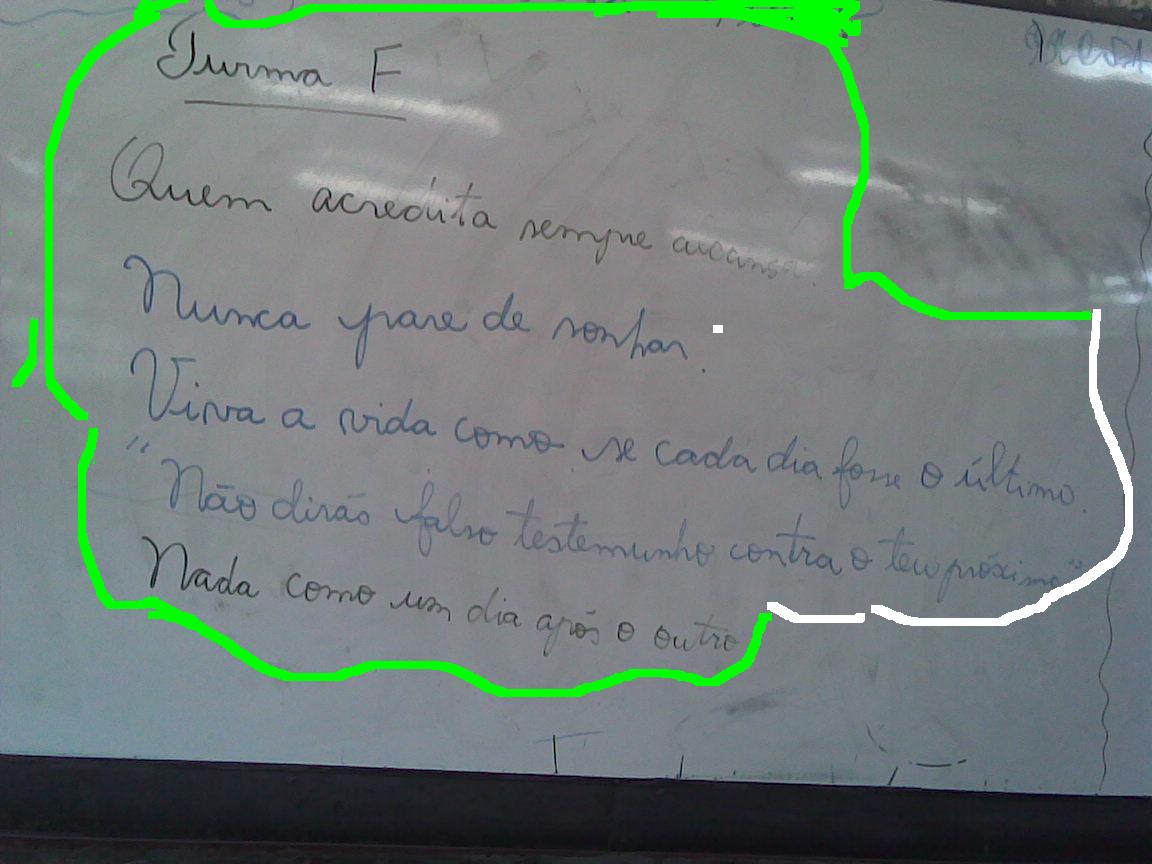 Turma F
Quem acredita sempre alcança.
Nunca pare de sonhar.
Viva a vida como se cada dia fosse o último.
"Não dirás falso testemunho contra o teu próximo"
Nada como um dia após o outro